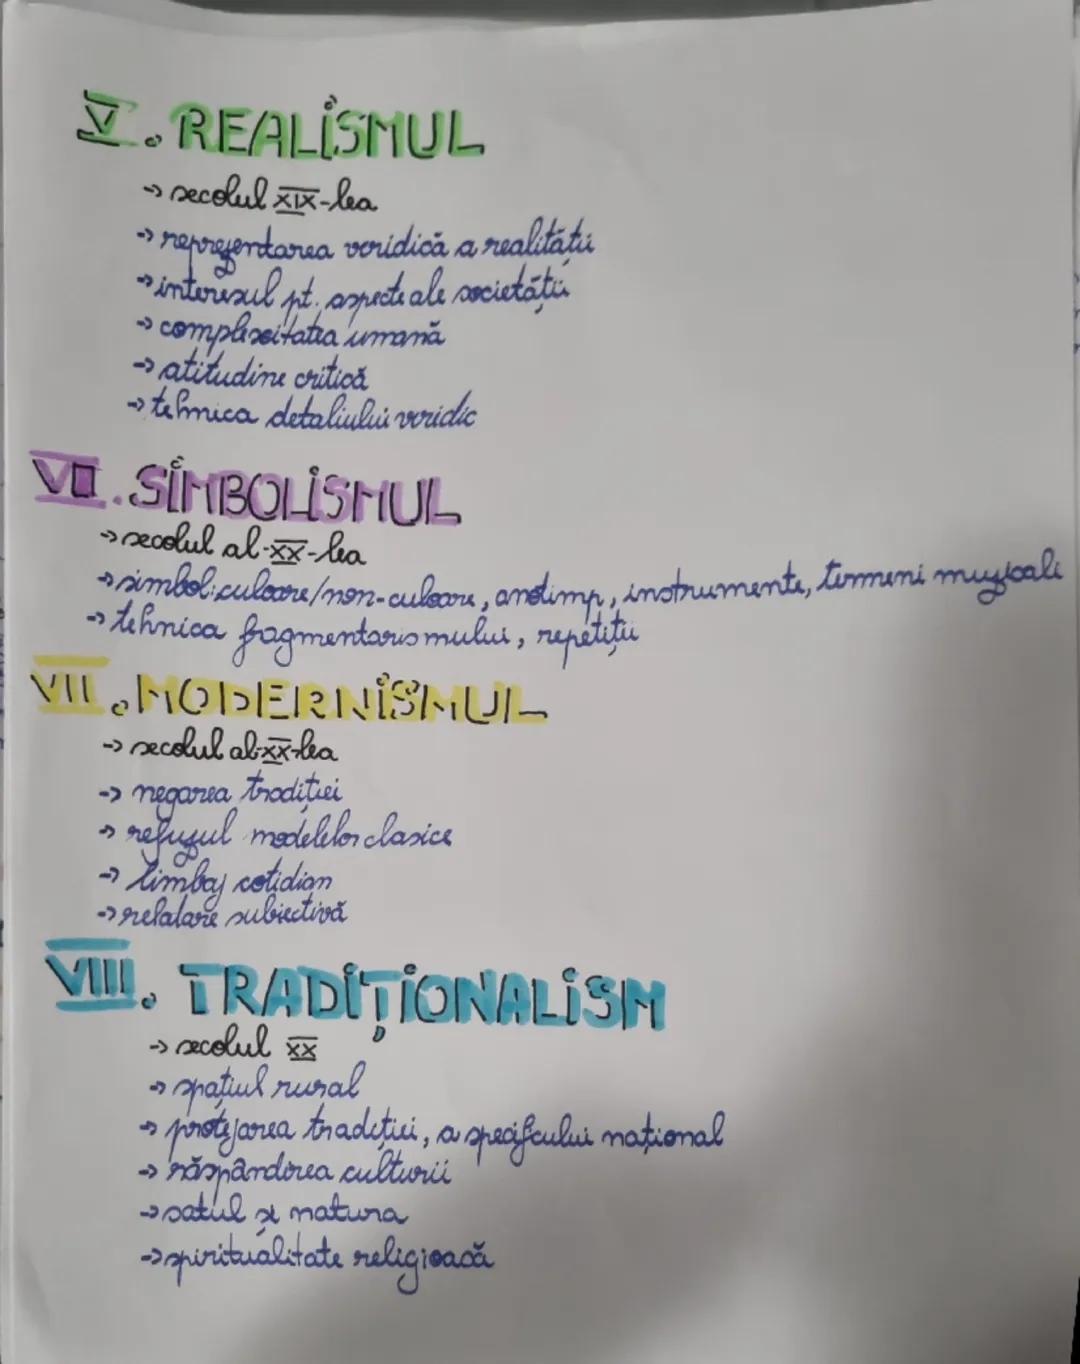 V. REALISMUL
→ secolul XIX-lea
→ reprezentarea veridică a realității
→ interesul pt. aspecte ale societății
→ complexitatea umană
→ atitudine critică
→ tehnica detaliului veridic
VI. SIMBOLISMUL
→ secolul al-XX-lea
→ simbol: culoare/non-culoare, anotimp, instrumente, termeni muzicali
→ tehnica fragmentarismului, repetiții
VII. MODERNISMUL
→ secolul al-XX-lea
→ negarea tradiției
→ refuzul modelelor clasice
→ limbaj cotidian
→ relatare subiectivă
VIII. TRADIȚIONALISM
→ secolul XX
→ spațiul rural
→ protejarea tradiției, a specificului național
→ răspândirea culturii
→ satul și natura
→ spiritualitate religioasă